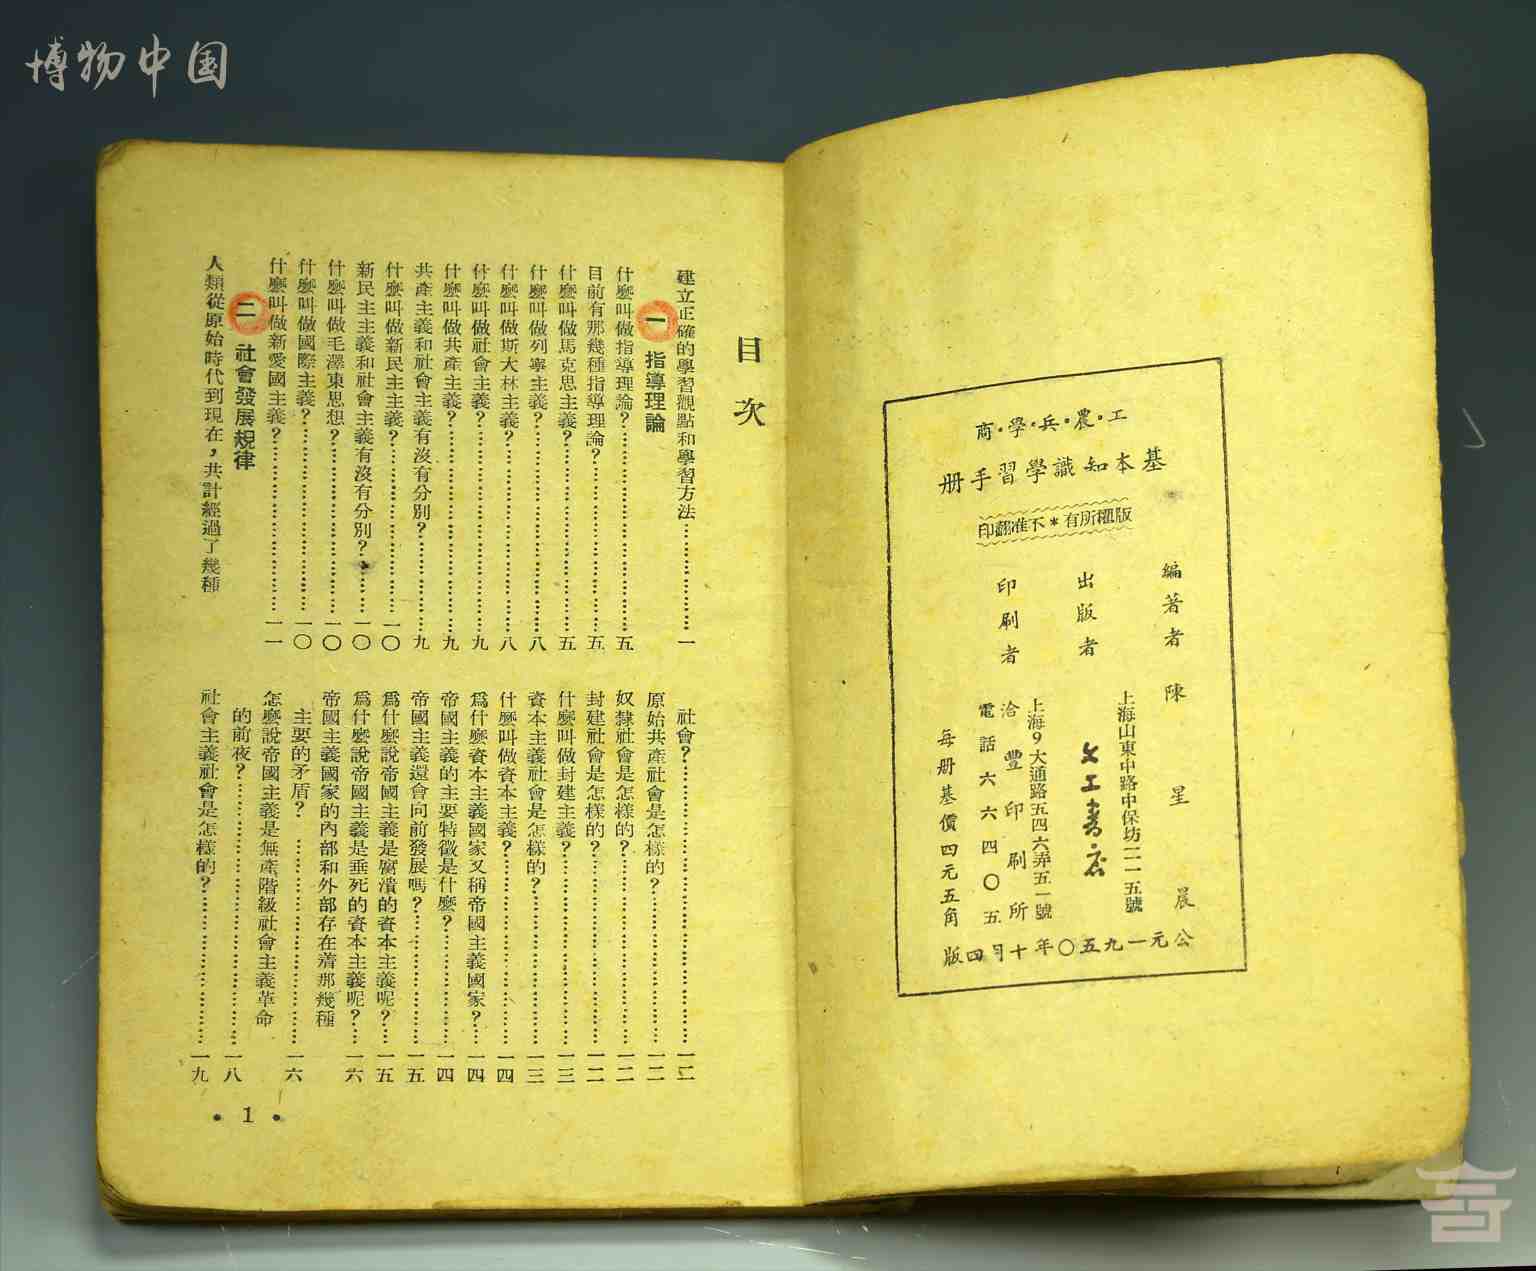 博物中国
工·農·兵·學·商
基本知識學習手册
版權所有*不准翻印
編著者 陳星晨
上海山東中路中保坊一一五號
出版者 文工書店
上海9大通路五四六弄五一號
印刷者 洽豐印刷所
電話六六四〇五
每册基價四元五角
公元一九五〇年十月四版
目次
建立正確的學習觀點和學習方法……………一
一 指導理論
什麼叫做指導理論?……………五
目前有那幾種指導理論?……………五
什麼叫做馬克思主義?……………五
什麼叫做列寧主義?……………八
什麼叫做斯大林主義?……………八
什麼叫做社會主義?……………九
什麼叫做共產主義?……………九
共產主義和社會主義有沒有分別?……………九
什麼叫做新民主主義?……………一〇
新民主主義和社會主義有沒有分別?……………一〇
什麼叫做毛澤東思想?……………一〇
什麼叫做國際主義?……………一〇
什麼叫做新愛國主義?……………一一
二 社會發展規律
人類從原始時代到現在,共計經過了幾種
社會?……………一二
原始共產社會是怎樣的?……………一二
奴隸社會是怎樣的?……………一二
封建社會是怎樣的?……………一二
什麼叫做封建主義?……………一三
資本主義社會是怎樣的?……………一三
什麼叫做資本主義?……………一四
爲什麼資本主義國家又稱帝國主義國家?…一四
帝國主義的主要特徵是什麼?……………一四
帝國主義還會向前發展嗎?……………一五
爲什麼說帝國主義是腐潰的資本主義呢?…一五
爲什麼說帝國主義是垂死的資本主義呢?…一六
帝國主義國家的內部和外部存在着那幾種
主要的矛盾?……………一六
怎麼說帝國主義是無產階級社會主義革命
的前夜?……………一八
社會主義社會是怎樣的?……………一九
• 1 •